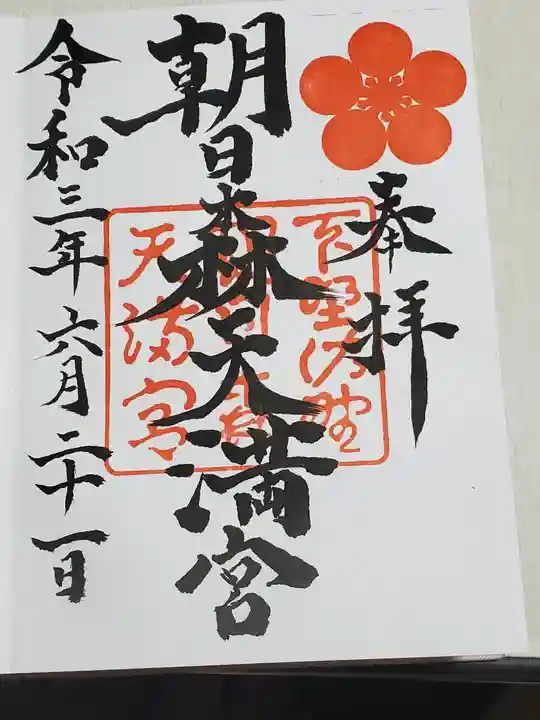 奉拝
朝日森天満宮
下野佐野
天満宮
令和三年六月二十一日